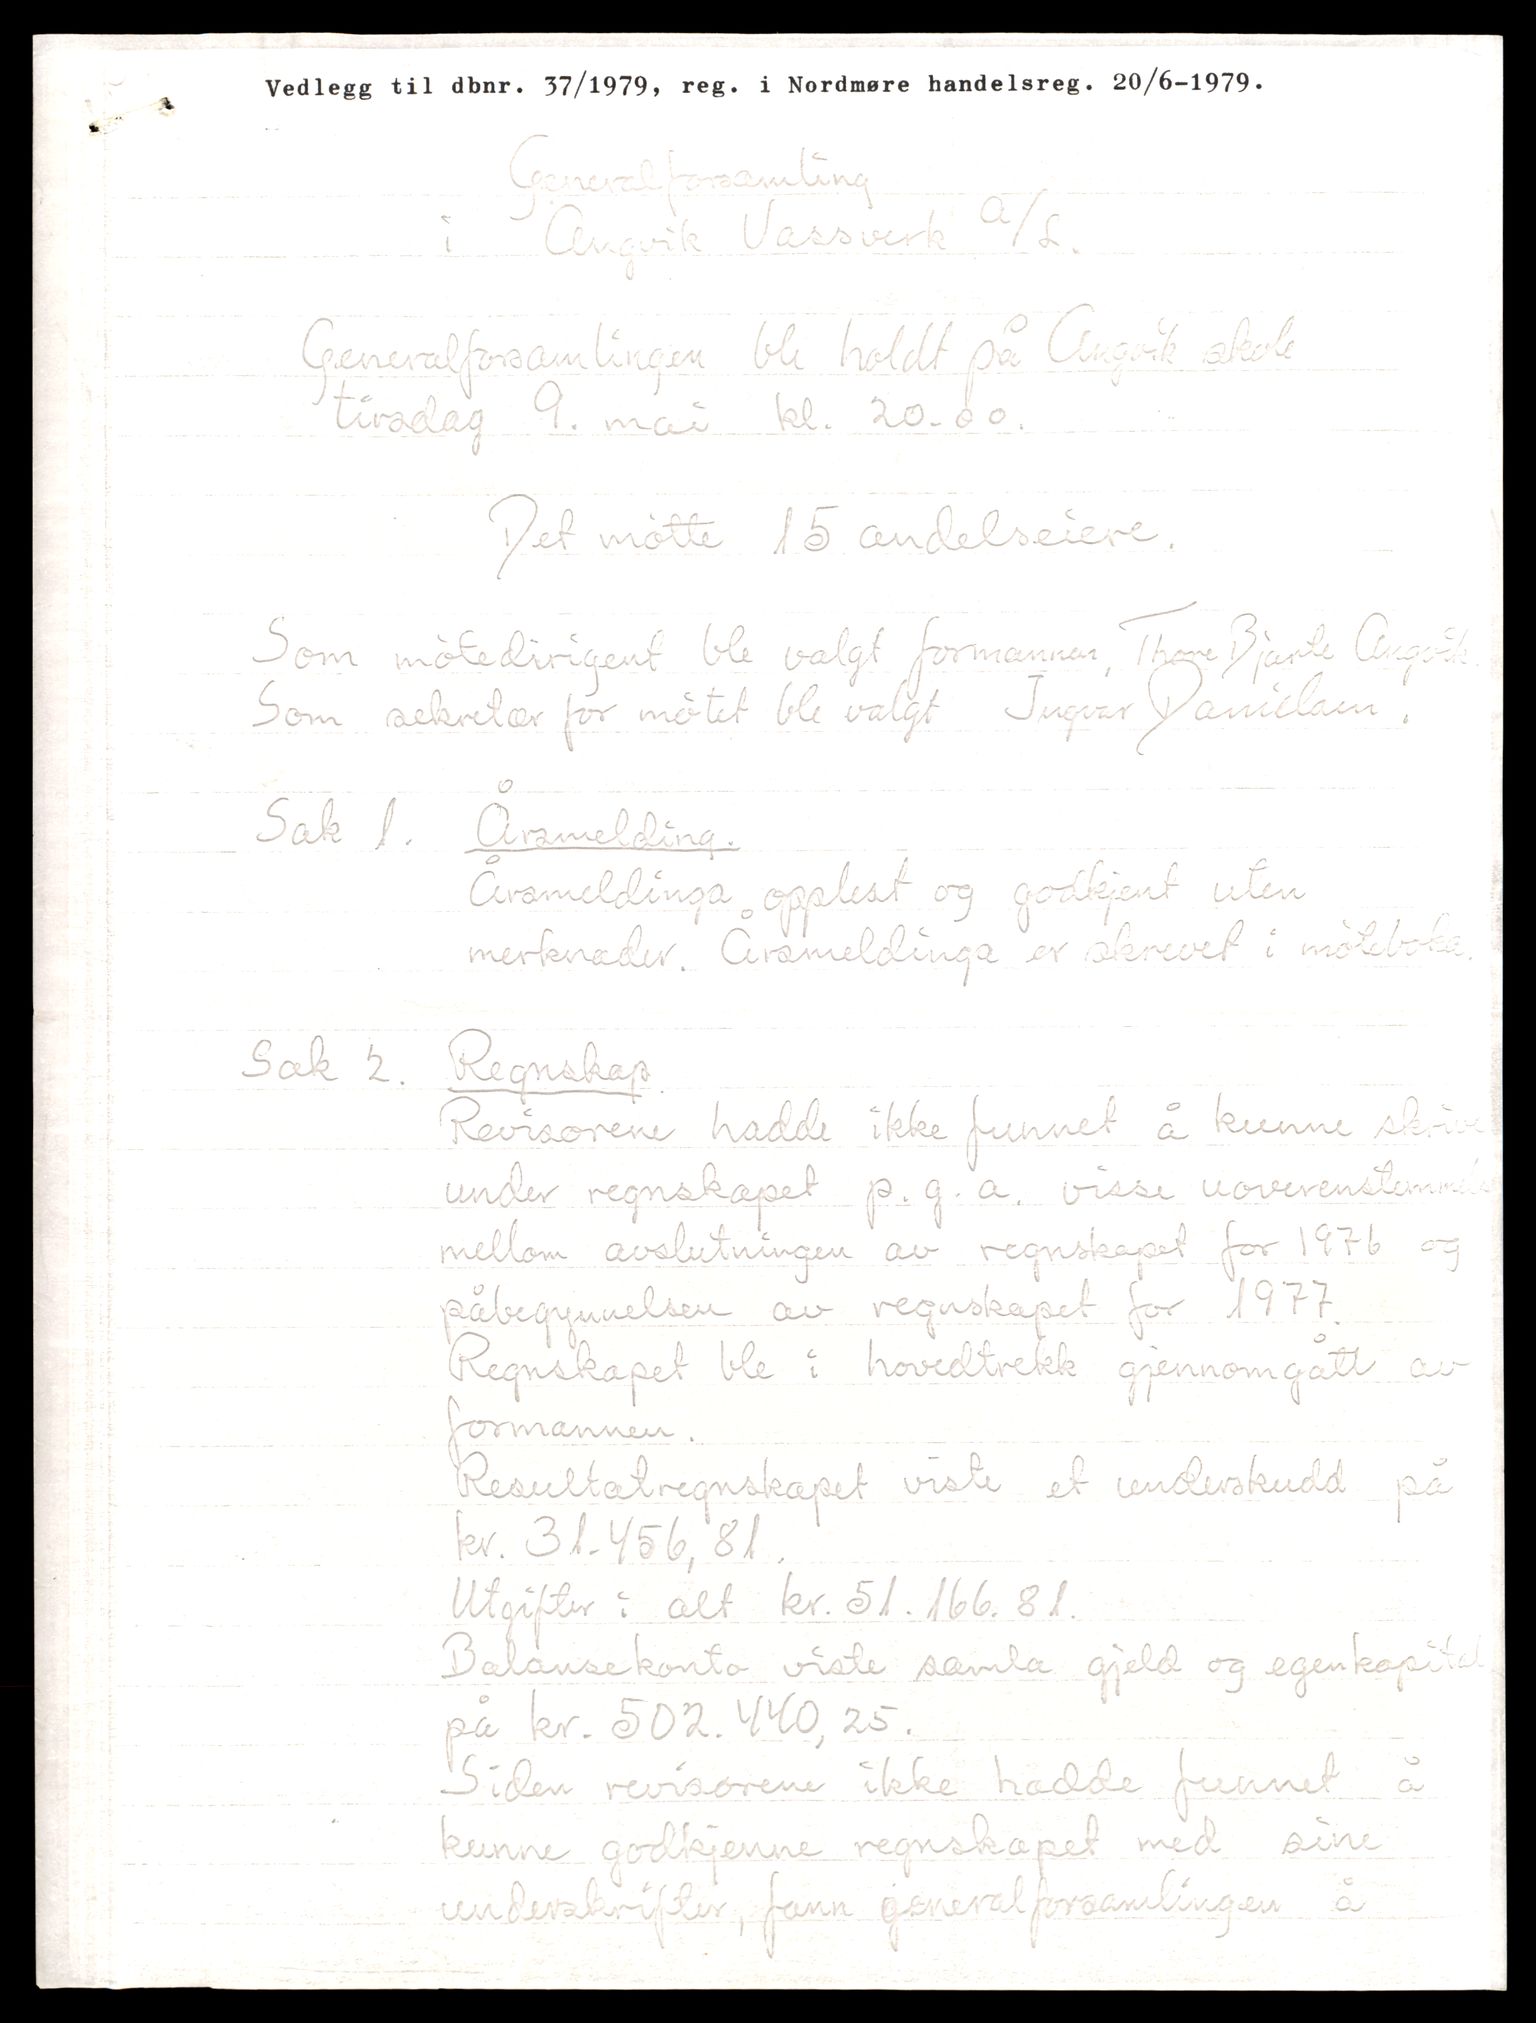 Vedlegg til dbnr. 37/1979, reg. i Nordmøre handelsreg. 20/6-1979.
Generalforsamling
i Angvik Vassverk A/L.
Generalforsamlingen ble holdt på Angvik skole
tirsdag 9. mai kl. 20.00.
Det møtte 15 andelseiere.
Som møtedirigent ble valgt formannen, Thore Bjarte Angvik.
Som sekretær for møtet ble valgt Ingvar Danielsen.
Sak 1. Årsmelding.
Årsmeldinga opplest og godkjent uten
merknader. Årsmeldinga er skrevet i møteboka.
Sak 2. Regnskap
Revisorene hadde ikke funnet å kunne skrive
under regnskapet p.g.a. visse uoverenstemmels
mellom avslutningen av regnskapet for 1976 og
påbegynnelsen av regnskapet for 1977.
Regnskapet ble i hovedtrekk gjennomgått av
formannen.
Resultatregnskapet viste et underskudd på
kr. 31.456,81.
Utgifter i alt kr. 51.166.81.
Balansekonto viste samla gjeld og egenkapital
på kr. 502.440,25.
Siden revisorene ikke hadde funnet å
kunne godkjenne regnskapet med sine
underskrifter, fann generalforsamlingen å